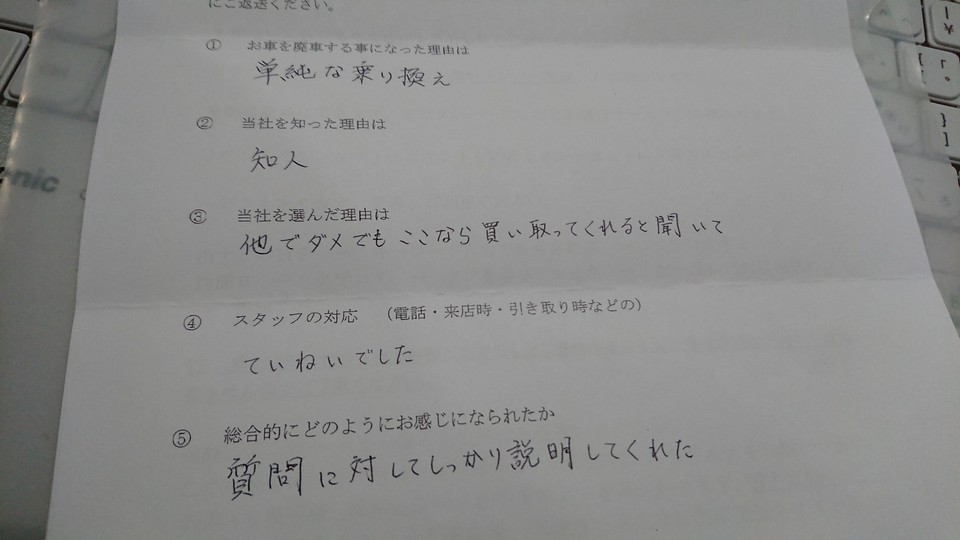 にご返送ください。
① お車を廃車する事になった理由は
単純な乗り換え
② 当社を知った理由は
知人
③ 当社を選んだ理由は
他でダメでもここなら買い取ってくれると聞いて
④ スタッフの対応 （電話・来店時・引き取り時などの）
ていねいでした
⑤ 総合的にどのようにお感じになられたか
質問に対してしっかり説明してくれた
nic